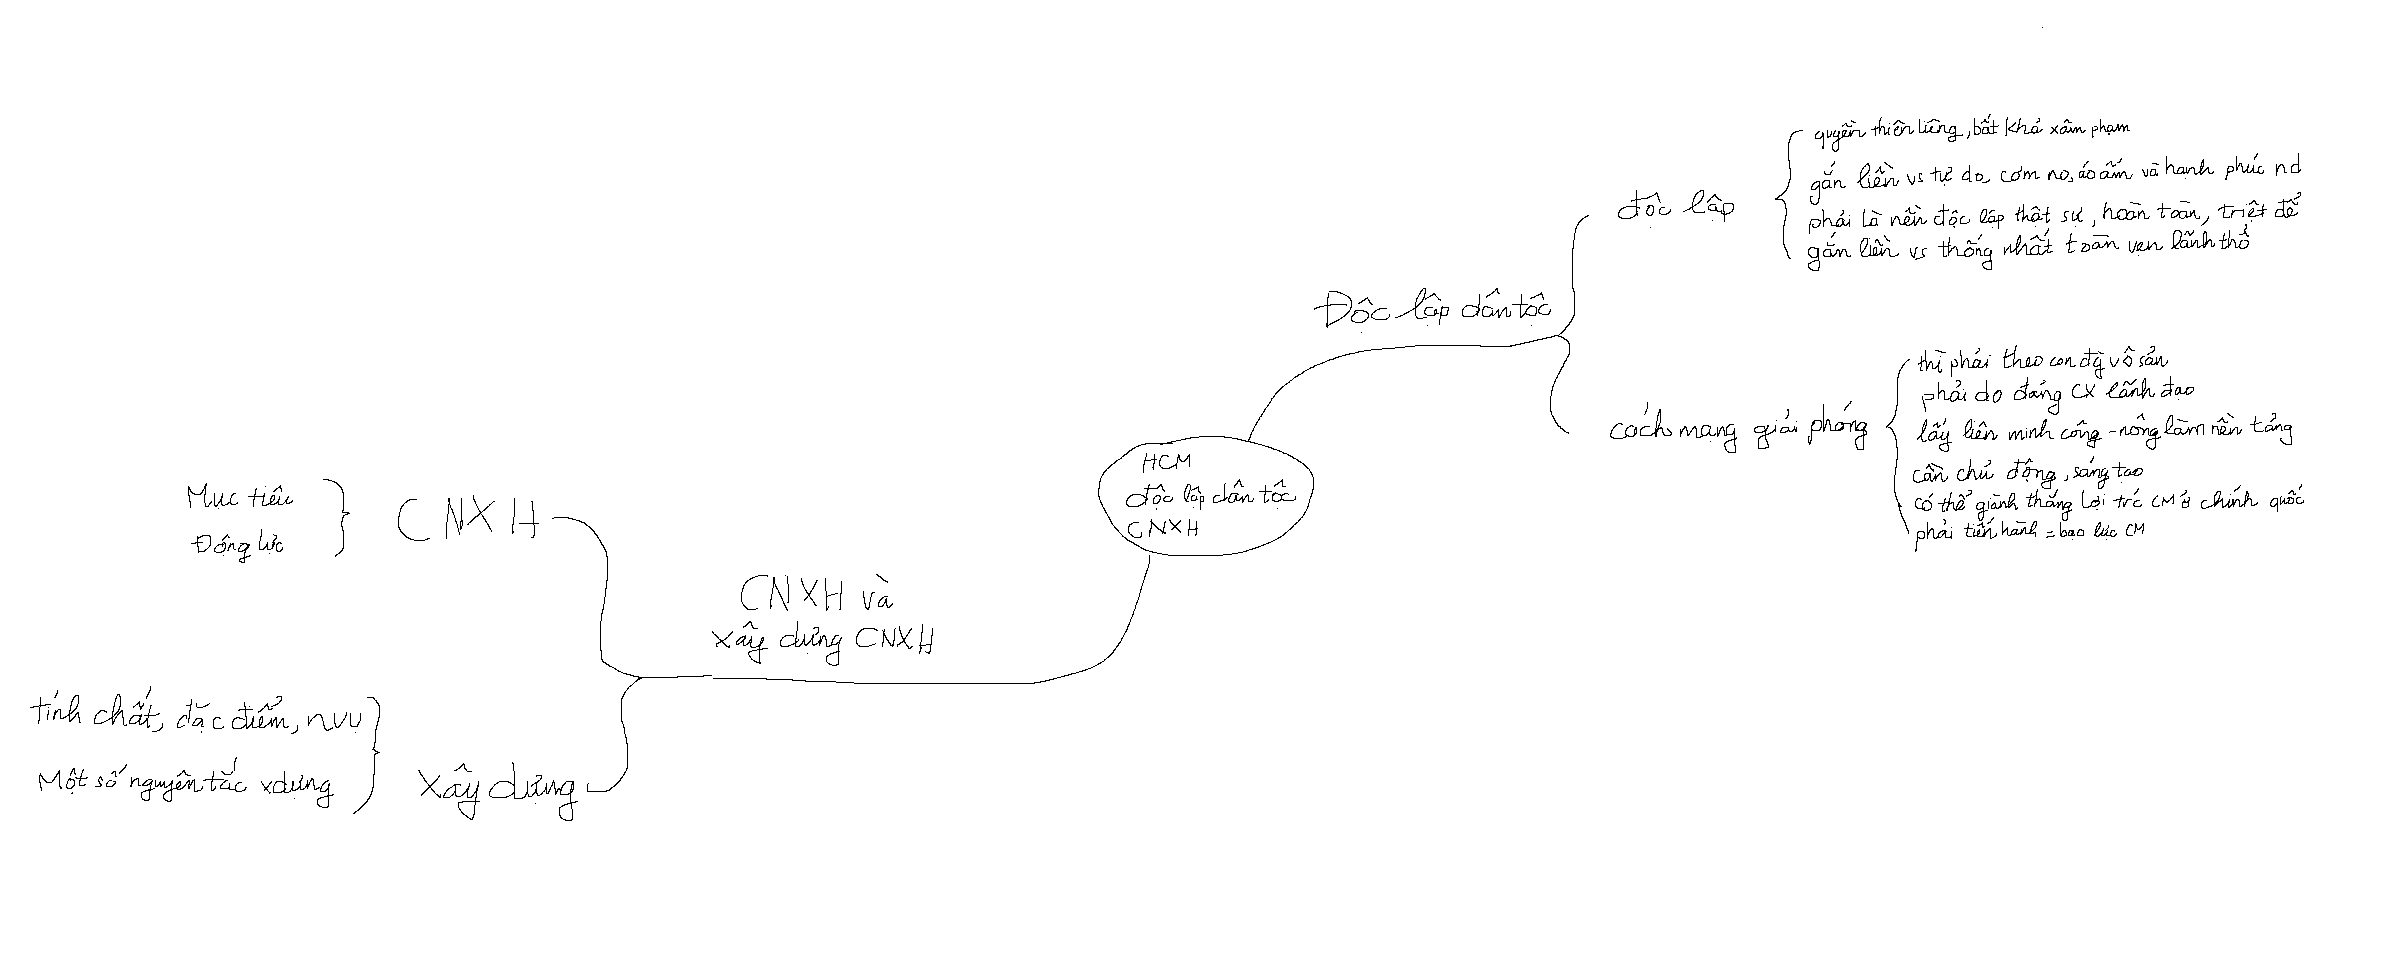 HCM
độc lập dân tộc
CNXH
Độc lập dân tộc
độc lập
quyền thiêng liêng, bất khả xâm phạm
gắn liền vs tự do, cơm no, áo ấm và hạnh phúc nd
phải là nền độc lập thật sự, hoàn toàn, triệt để
gắn liền vs thống nhất toàn vẹn lãnh thổ
cách mạng giải phóng
thì phải theo con đg vô sản
phải do đảng CX lãnh đạo
lấy liên minh công - nông làm nền tảng
cần chủ động, sáng tạo
có thể giành thắng lợi trc CM ở chính quốc
phải tiến hành = bạo lực CM
CNXH và
xây dựng CNXH
CNXH
Mục tiêu
Động lực
Xây dựng
tính chất, đặc điểm, nvụ
Một số nguyên tắc xdựng